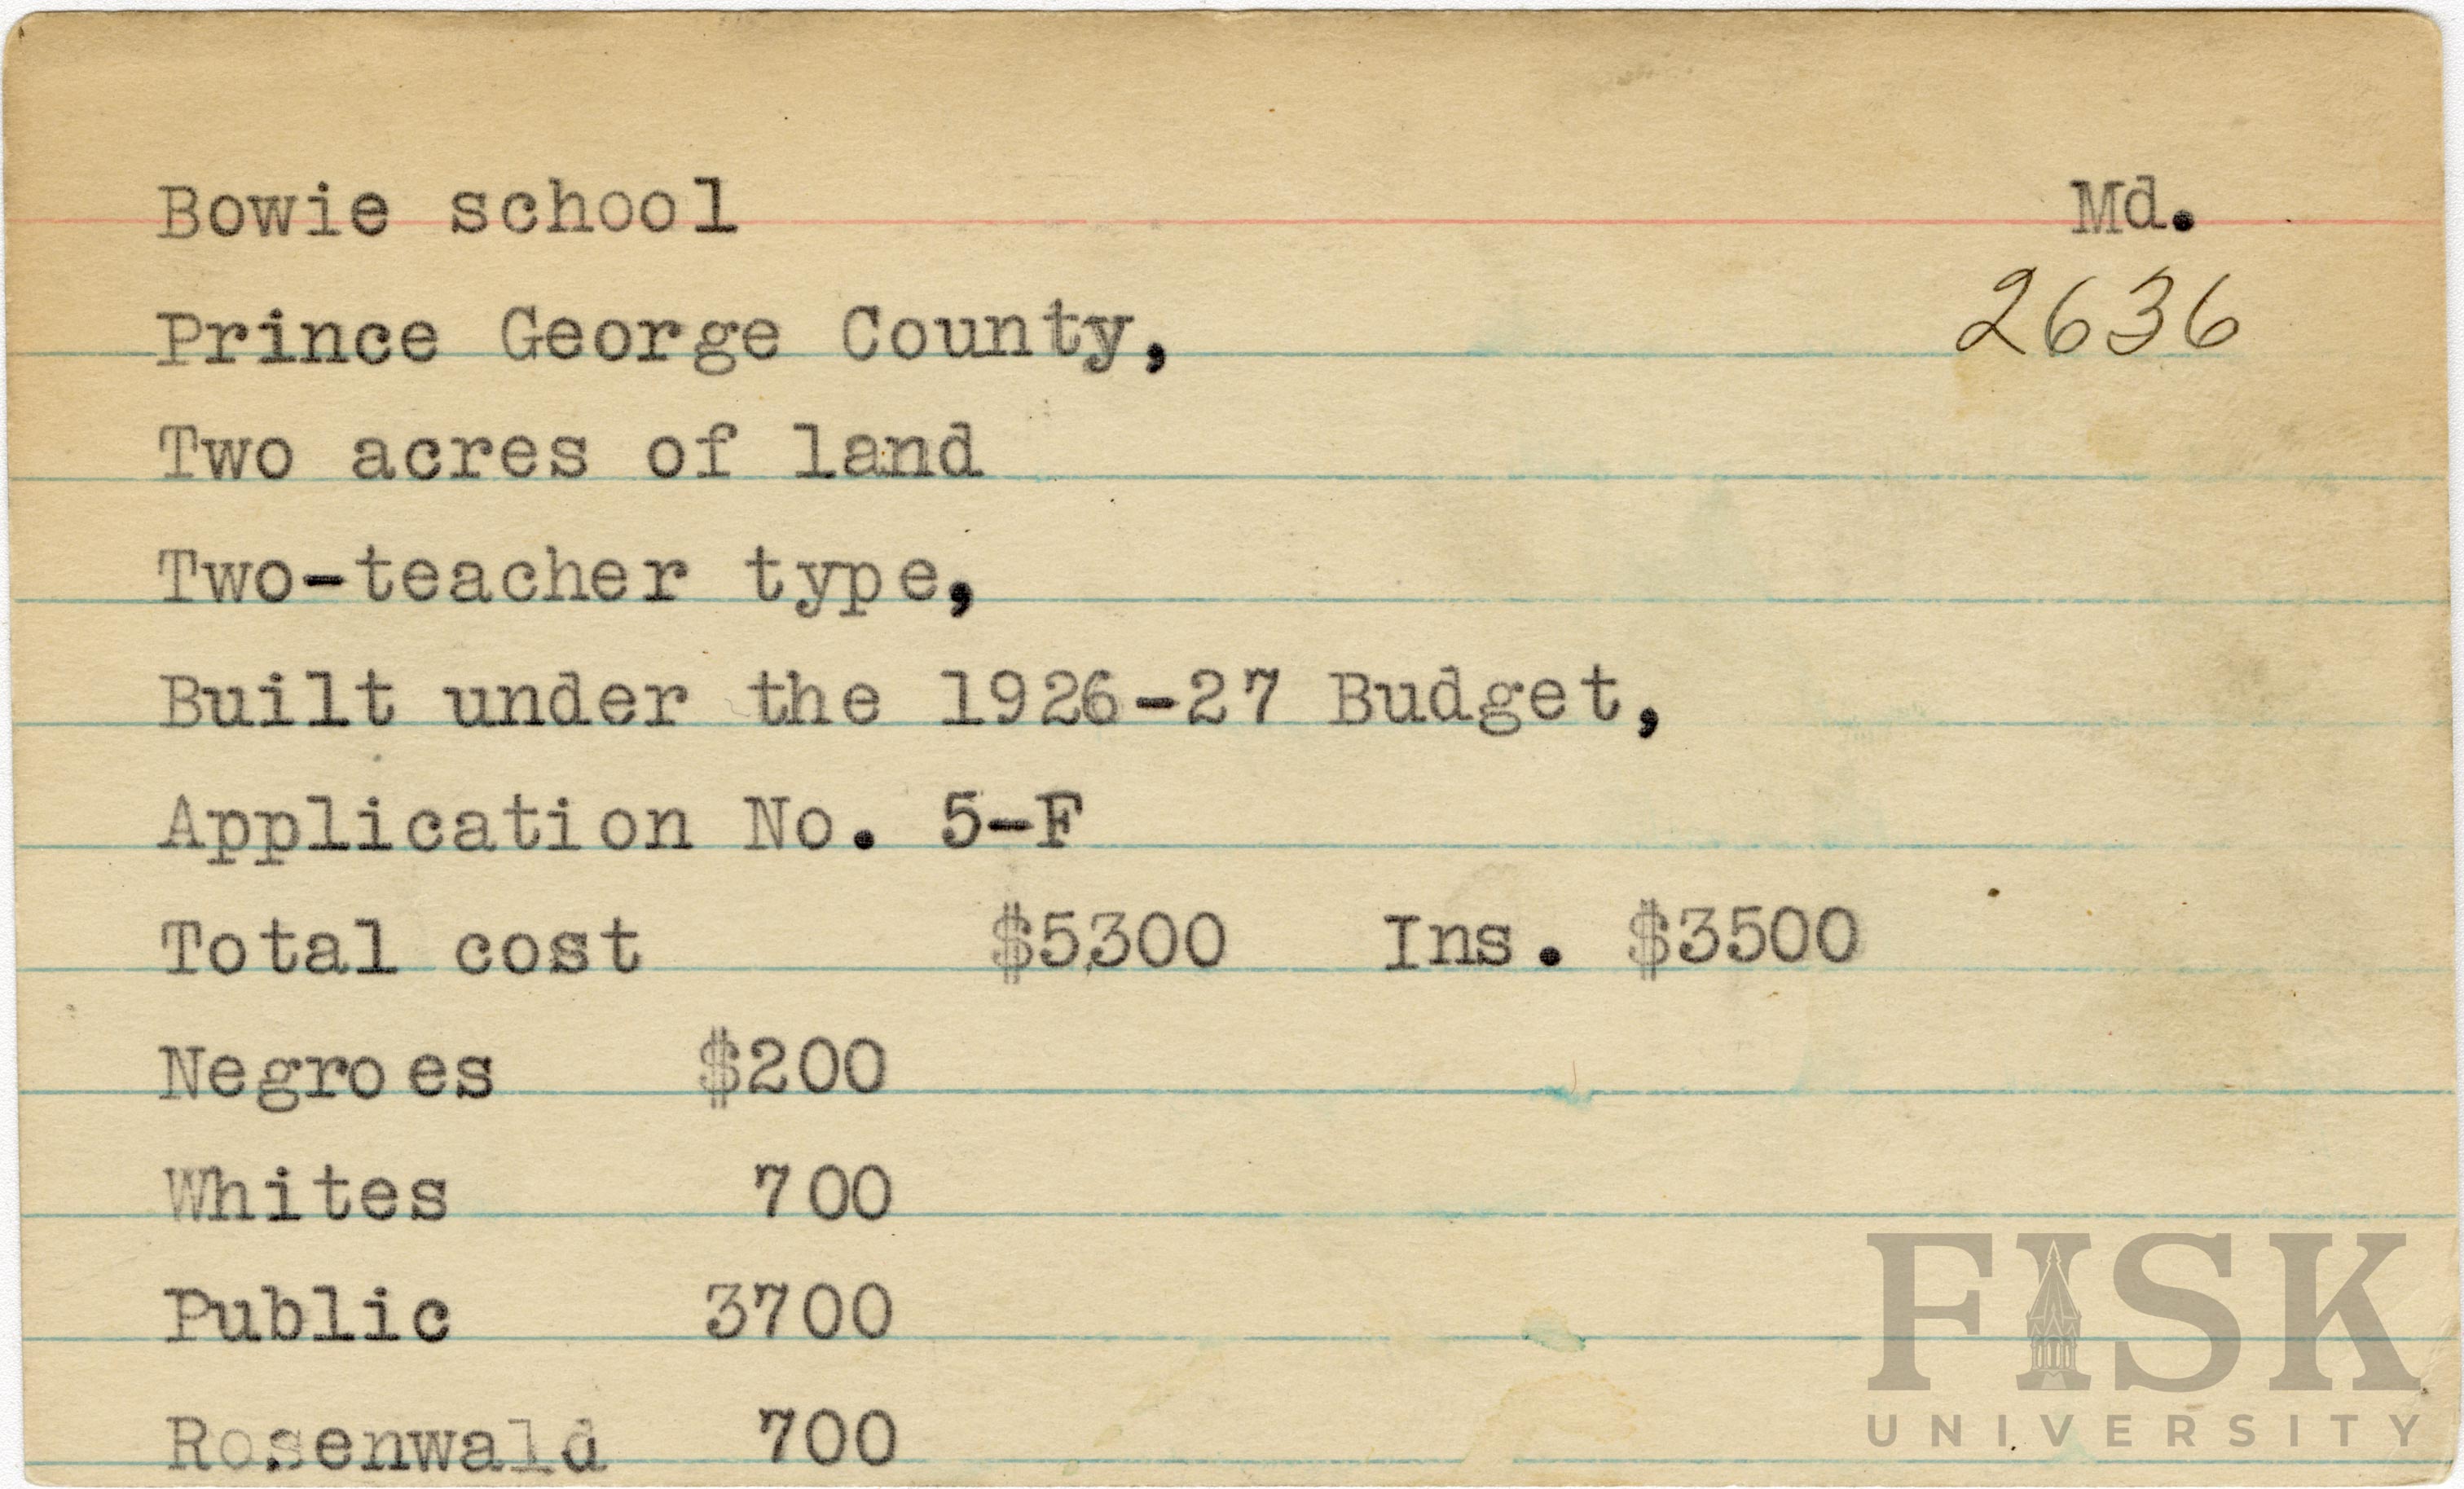 Bowie school Md.
2636
Prince George County,
Two acres of land
Two-teacher type,
Built under the 1926-27 Budget,
Application No. 5-F
Total cost $5300 Ins. $3500
Negroes $200
Whites 700
Public 3700
Rosenwald 700
FISK
UNIVERSITY